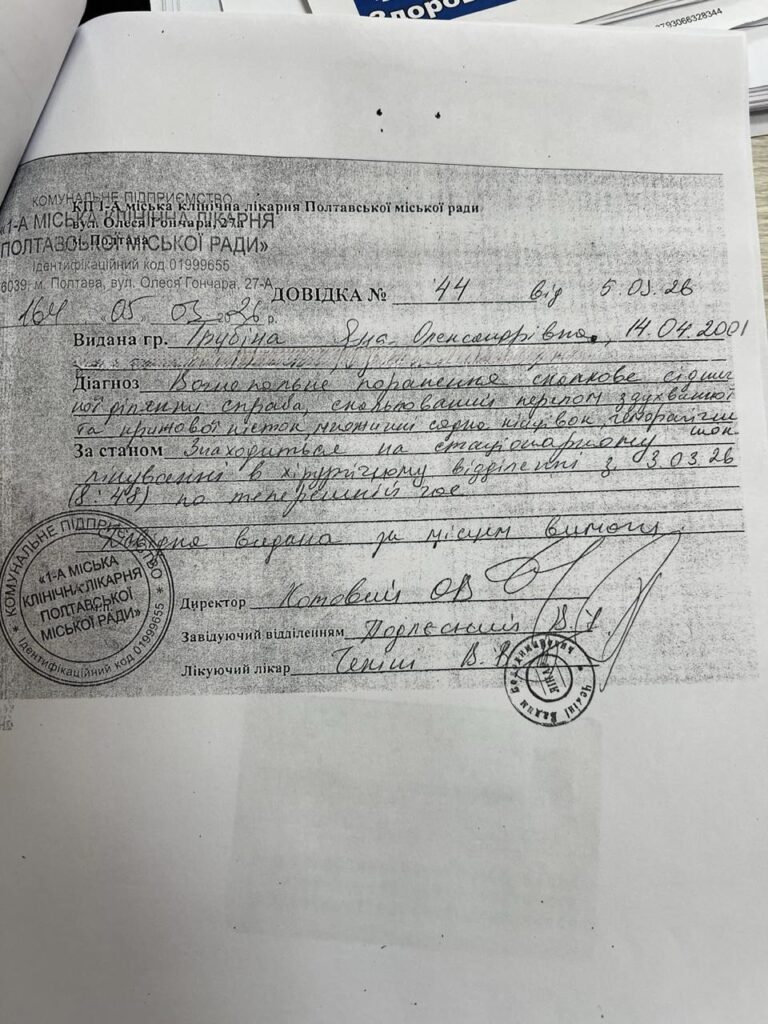 Здоров
3793066328344
КОМУНАЛЬНЕ ПІДПРИЄМСТВО
«1-А МІСЬКА КЛІНІЧНА ЛІКАРНЯ
ПОЛТАВСЬКОЇ МІСЬКОЇ РАДИ»
Ідентифікаційний код 01999655
м. Полтава, вул. Олеся Гончара, 27-А
164 05 03 2026 р.
КП 1-А міська клінічна лікарня Полтавської міської ради
вул. Олеся Гончара, 27а
м. Полтава
ДОВІДКА № 44 від 5.03.26
Видана гр. Трубіна Яна Олександрівна, 14.04.2001
Діагноз Вогнепальне поранення осколкове сіднич
ної ділянки справа, перелом здухвинної
та крижової кісток, множинні садна, геморагічний
шок
За станом Знаходиться на стаціонарному
лікуванні в хірургічному відділенні з 3.03.26
(8:48) по теперешній час
видана за місцем вимоги.
Директор Котовий ОВ
Завідуючий відділенням
Лікуючий лікар Челіні В.
КОМУНАЛЬНЕ ПІДПРИЄМСТВО
«1-А МІСЬКА
КЛІНІЧНА ЛІКАРНЯ
ПОЛТАВСЬКОЇ
МІСЬКОЇ РАДИ»
Ідентифікаційний код 01999655
ЛІКАР